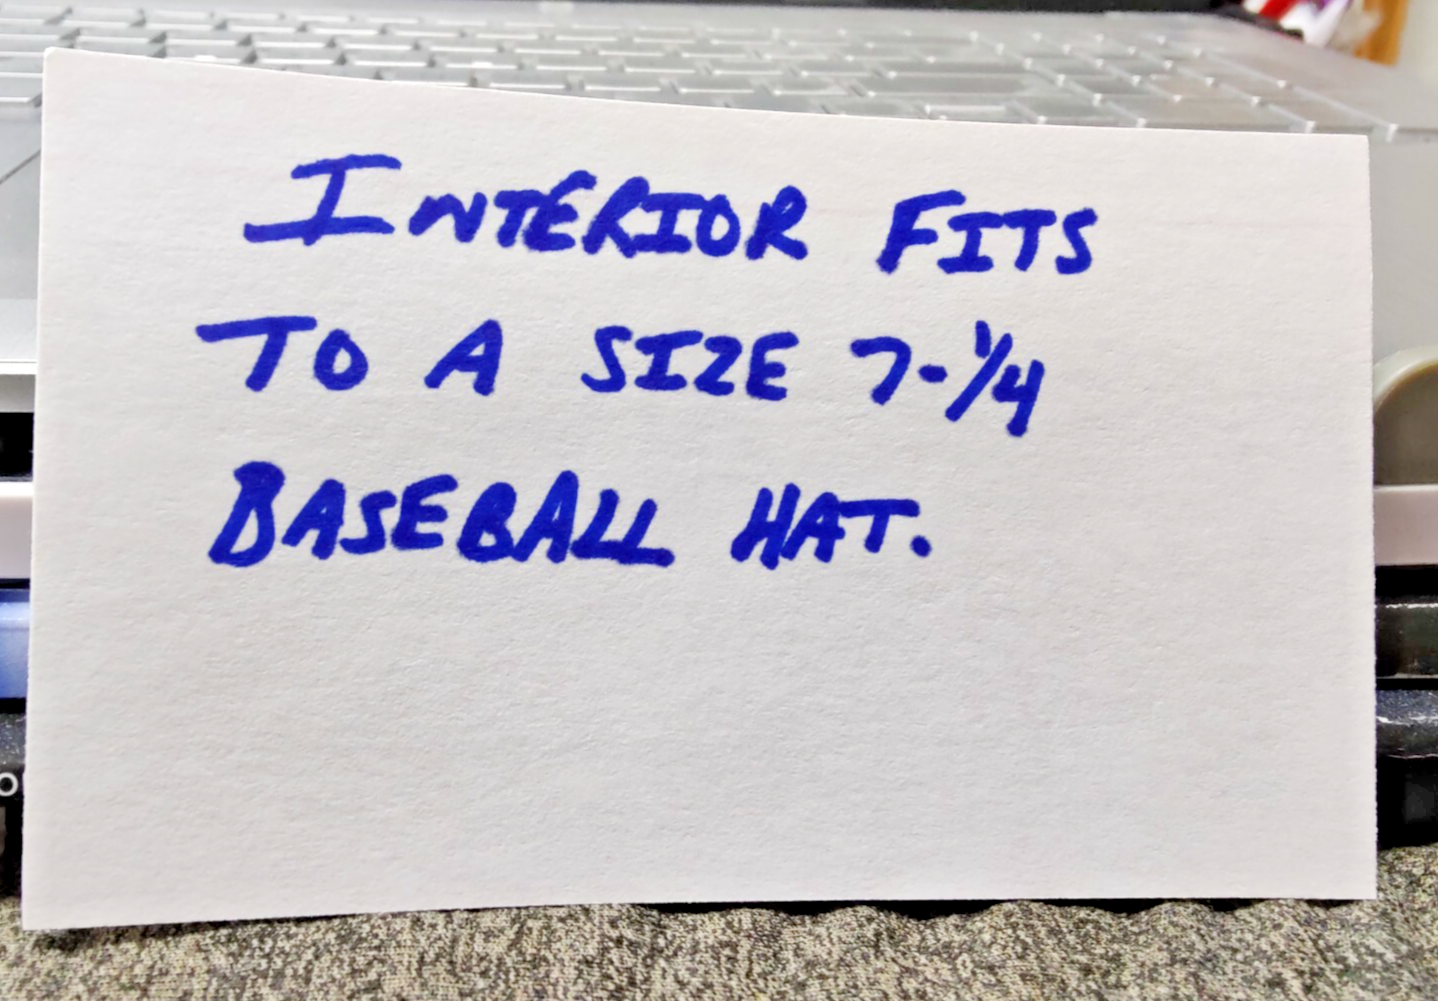 INTERIOR FITS
TO A SIZE 7-1/4
BASEBALL HAT.